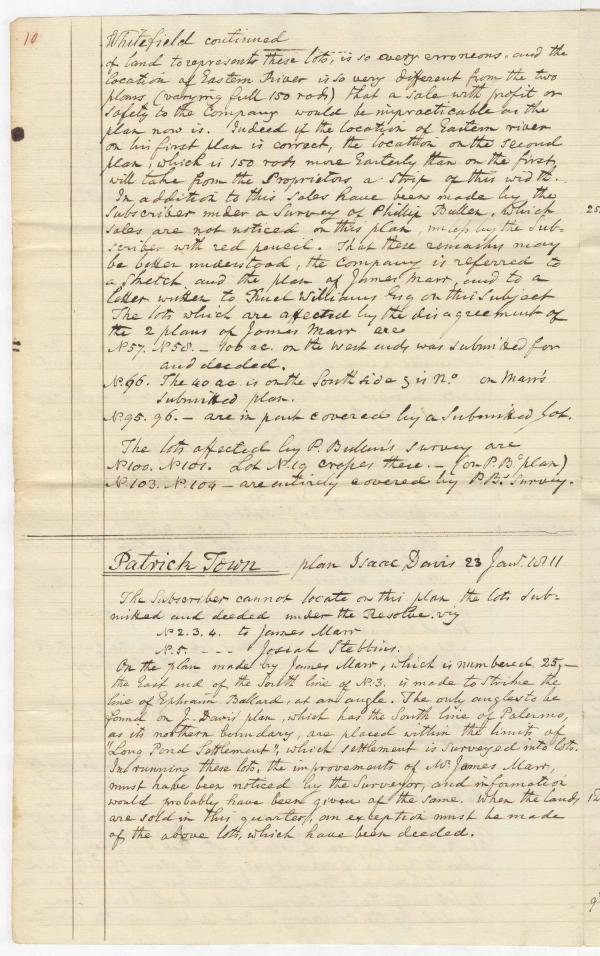 10
Whitefield continued
of land to represents these lots, is so every erroneous, and the
location of Eastern River is so very different from the two
plans (varying full 150 rods) that a sale with profit or
safety to the Company would be impracticable as the
plan now is. Indeed if the location of Eastern river
on his first plan is correct, the location on the second
plan, which is 150 rods more Easterly than on the first,
will take from the Proprietors a strip of this width.
In addition to this sales have been made by the
Subscriber under a Survey of Phillip Bullen, which
sales are not noticed on this plan, unless by the Sub-
scriber with red pencil. That these remarks may
be better understood, the Company is referred to
a sketch and the plan of James Marr, and to a
letter written to Ruel Williams Esq on this Subject
The lots which are affected by the disagreement of
the 2 plans of James Marr are
No 57. No 58. – 100 ac. on the west ends was submitted for
and deeded.
No. 66. The 40 ac. is on the South side & is No. on Marr's
Submitted plan.
No. 95. 96. – are in part covered by a Submitted lot.
The lots affected by P. Bullen's survey are
No 100. No 101. Lot No. 19 crosses these. – (on P. B's plan)
No. 103. No. 104 – are entirely covered by P. B's Survey.
Patrick Town plan Isaac Davis 23 Jany. 1811
The Subscriber cannot locate on this plan the lots sub-
mitted and deeded under the Resolve. viz
No 2. 3. 4. to James Marr
No. 5. - - - Josiah Stebbins.
On the plan made by James Marr, which is numbered 25, –
the East end of the South line of No. 3. is made to strike the
line of Ephraim Ballard, at an angle. The only angles to be
found on J. Davis plan, which has the South line of Palermo,
as its northern boundary, are placed within the limits of
"Long Pond Settlement", which settlement is surveyed into lots.
In running these lots, the improvements of Mr James Marr,
must have been noticed by the Surveyor, and information
would probably have been given of the same. When the lands
are sold in this quarter, an exception must be made
of the above lots, which have been deeded.
25